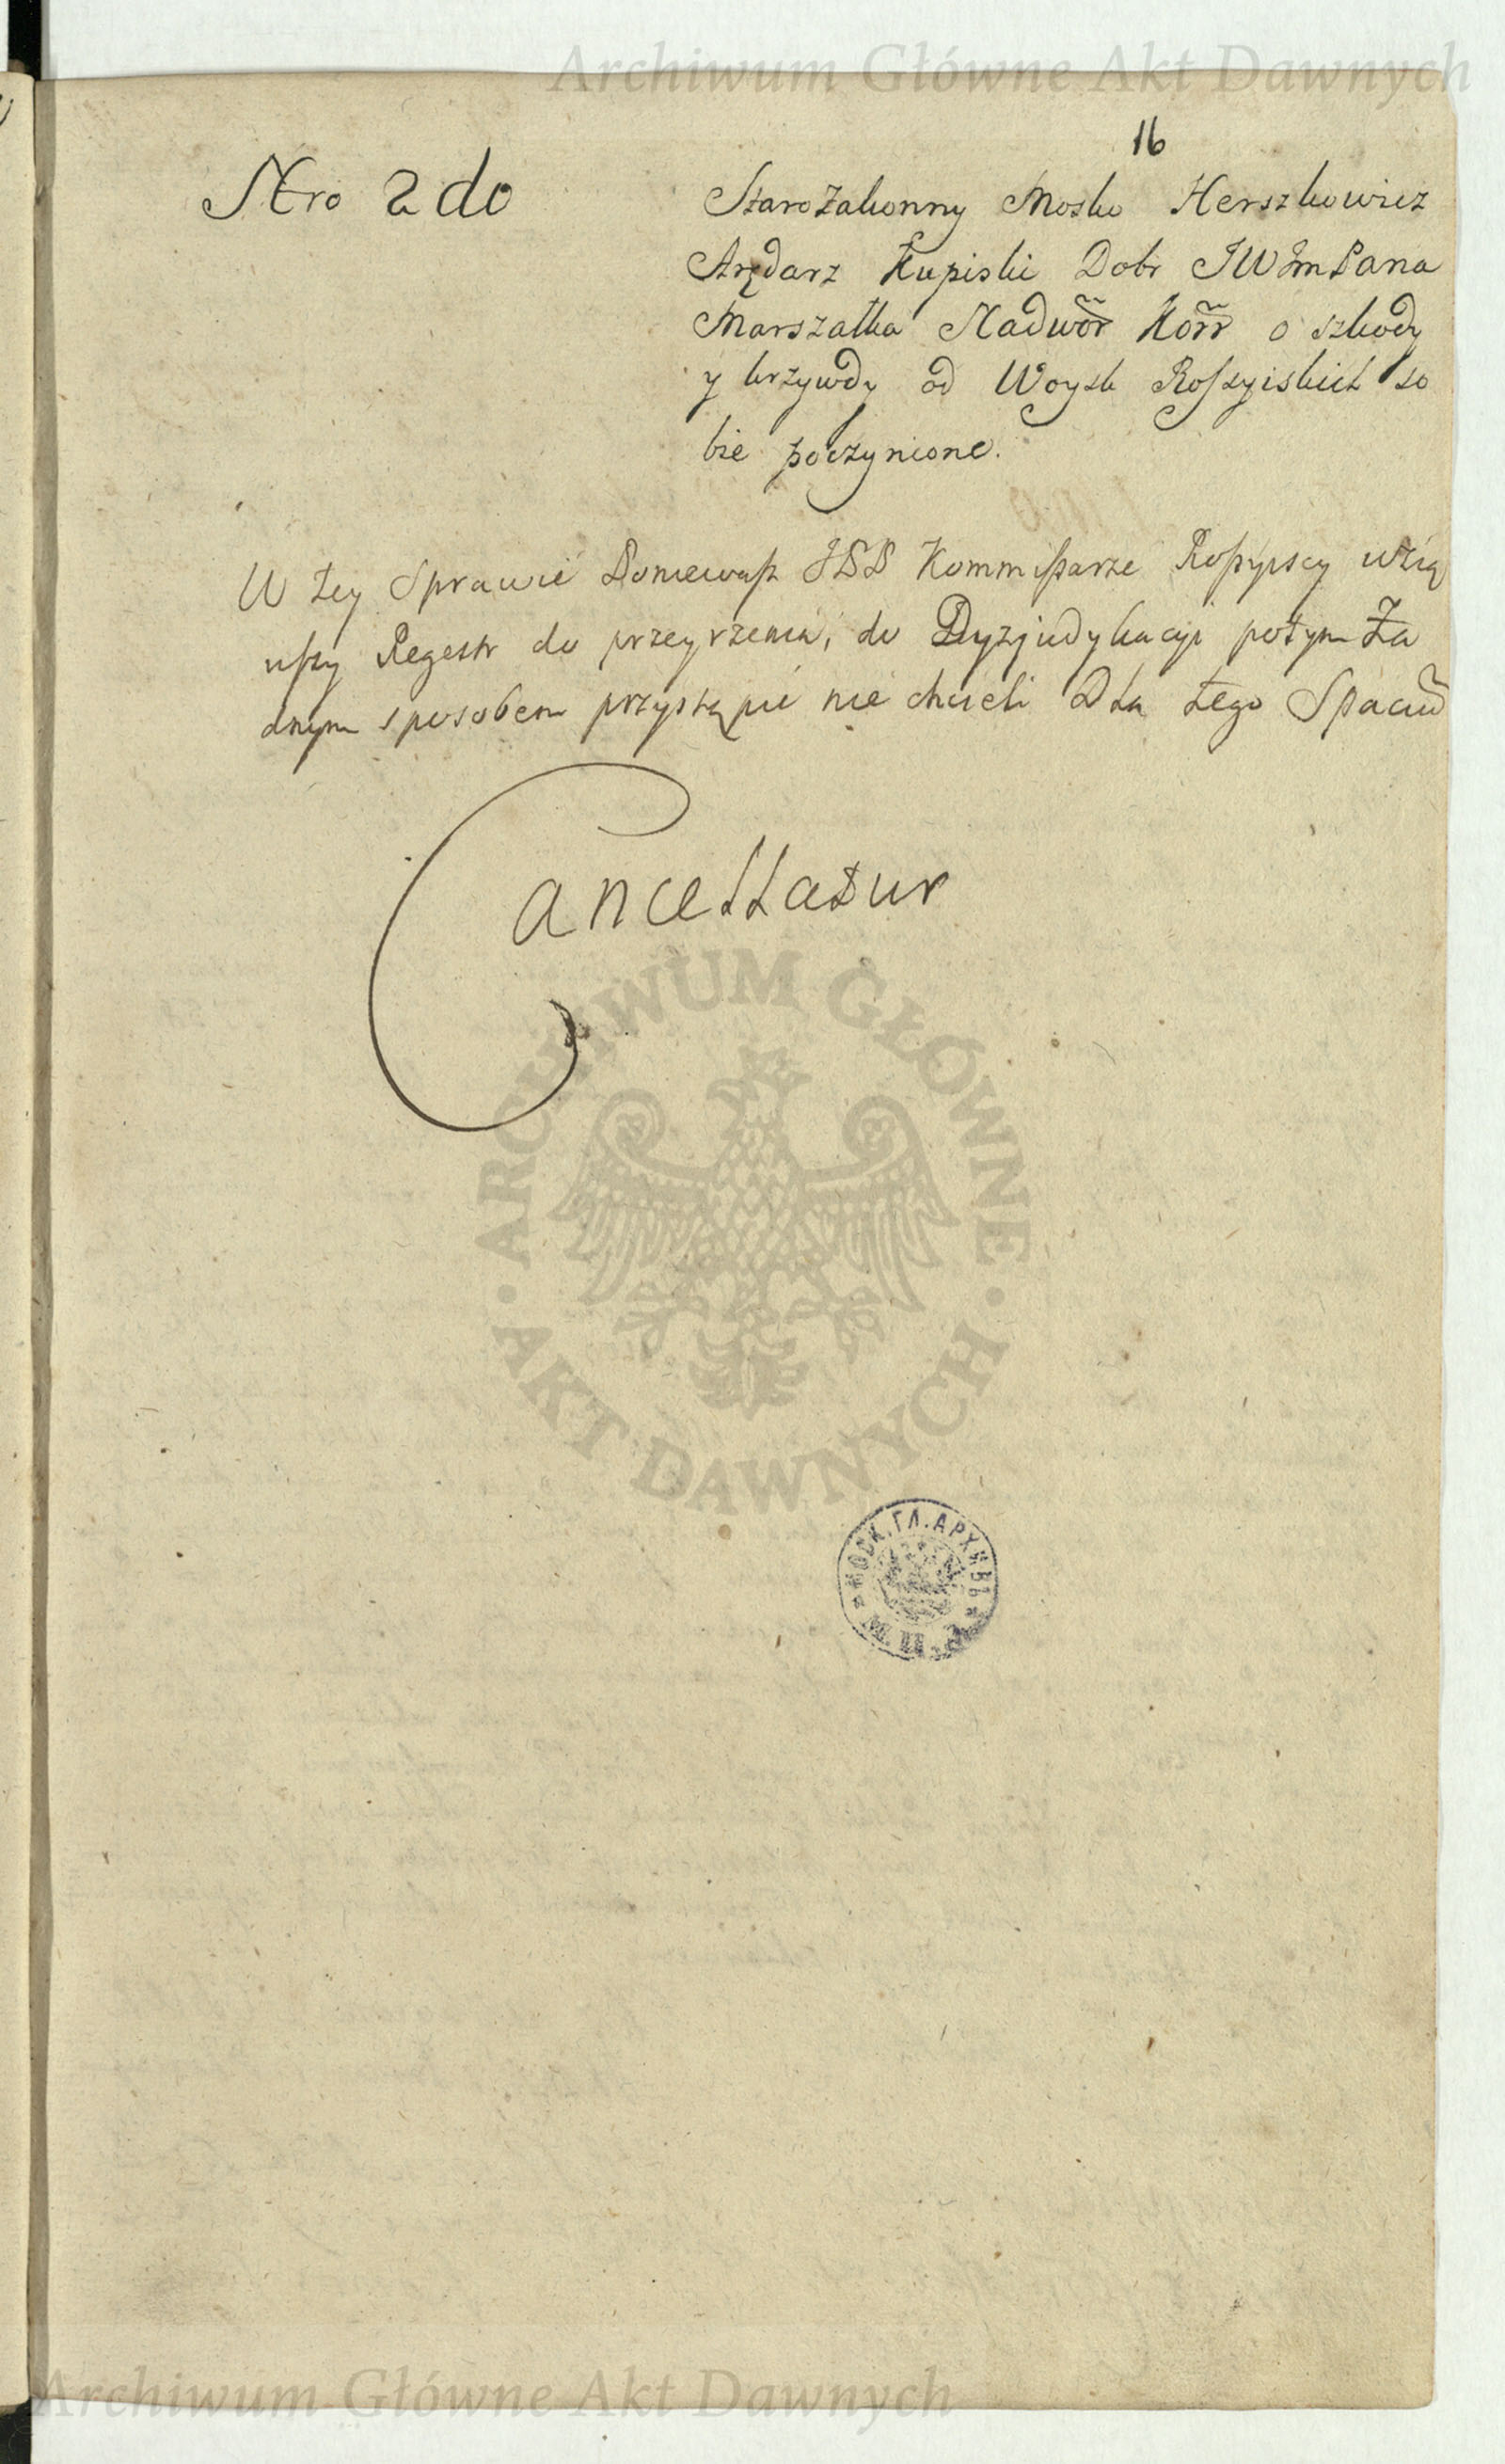 Archiwum Główne Akt Dawnych
16
Nro 2do
Starozakonny Mosko Herszkowicz
Arędarz Kupiski Dobr JWJmPana
Marszałka Nadwor̃ Korr̃ o szkody
y krzywdy od Woysk Roſsyiskich so
bie poczynione.
W tey Sprawie Poniewaſz JPP Kommiſsarze Roſsyiscy wzią
wſzy Regestr do przeyrzenia, do Dyzjudykacyi potym Ża
dnym sposobem przystąpić nie chcieli Dla tego Spaciũ
Cancellatur
ARCHIWUM GŁÓWNE
AKT DAWNYCH
МОСК. ГЛ. АРХИВЪ
М. И. Д.
Archiwum Główne Akt Dawnych